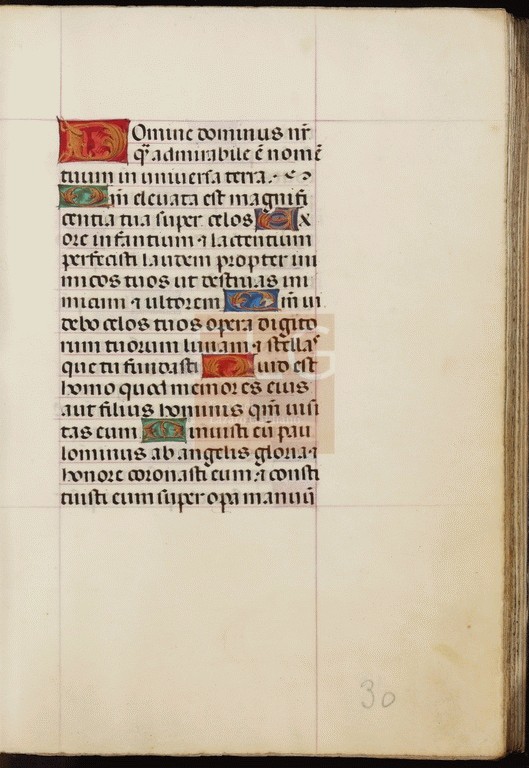 Domine dominus nr̄
q̄ admirabile ē nomē
tuum in universa terra.
Qm̄ elevata est magnifi
centia tua super celos Ex
ore infantium ⁊ lactentium
perfecisti laudem propter ini
micos tuos ut destruas ini
micum ⁊ ultorem Qm̄ vi
debo celos tuos opera digito
rum tuorum lunam ⁊ stellas
que tu fundasti Quid est
homo quod memor es eius
aut filius hominis qm̄ visi
tas eum Minuisti eū pau
lominus ab angelis gloria ⁊
honore coronasti eum ⁊ consti
tuisti eum super opa manuū
30